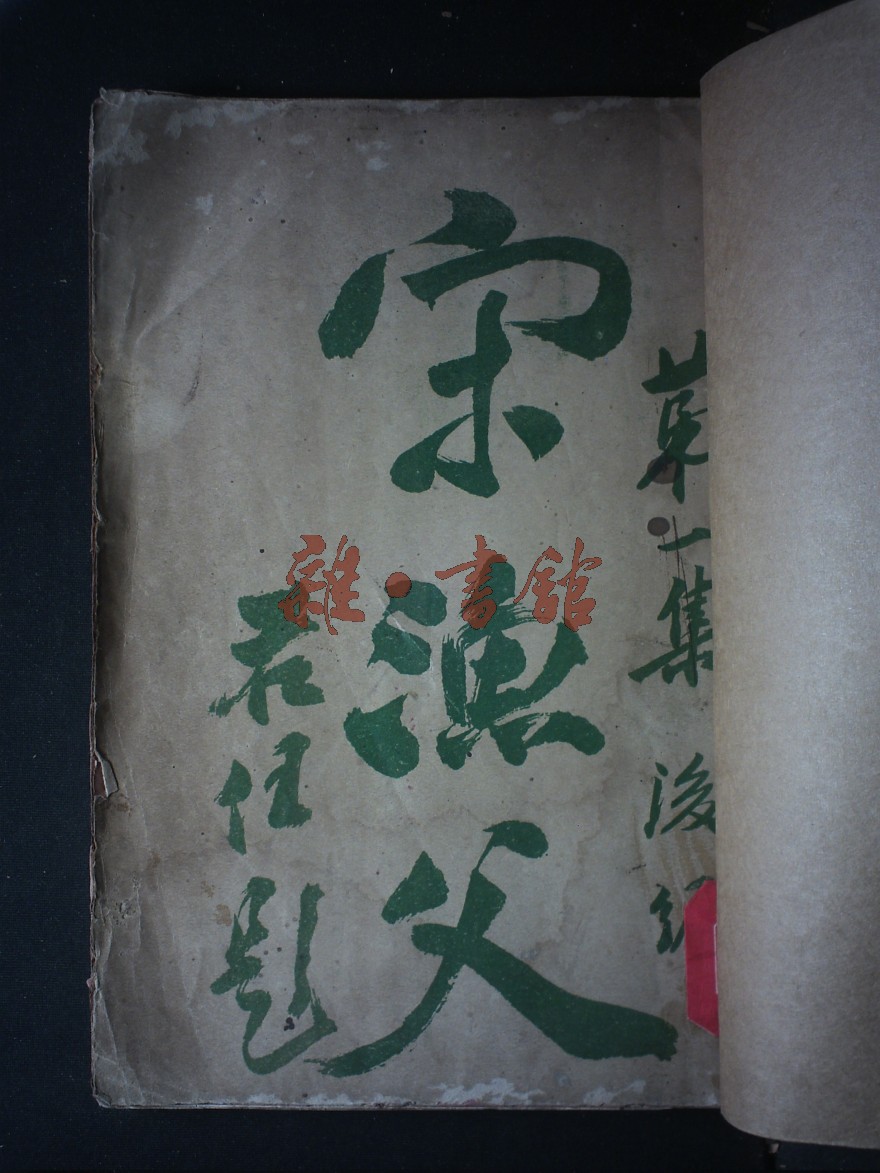 第一集 後
宋漁父
右任題
雜·書館